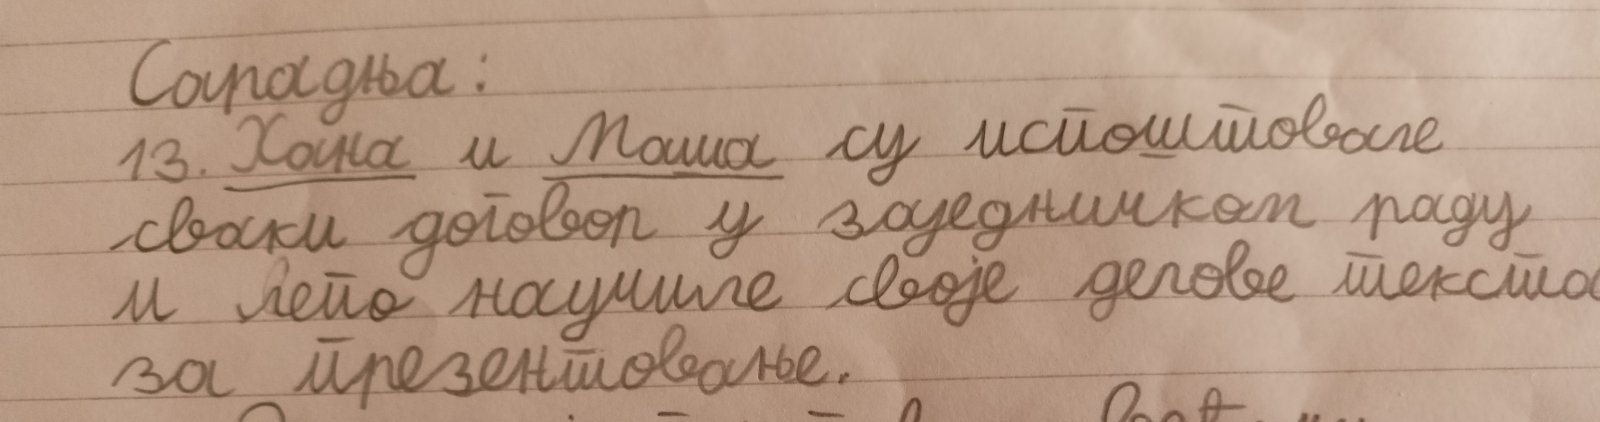 Сарадња:
13. Хана и Маша су испоштовале
сваки договор у заједничком раду
и лепо научиле своје делове текста
за презентовање.